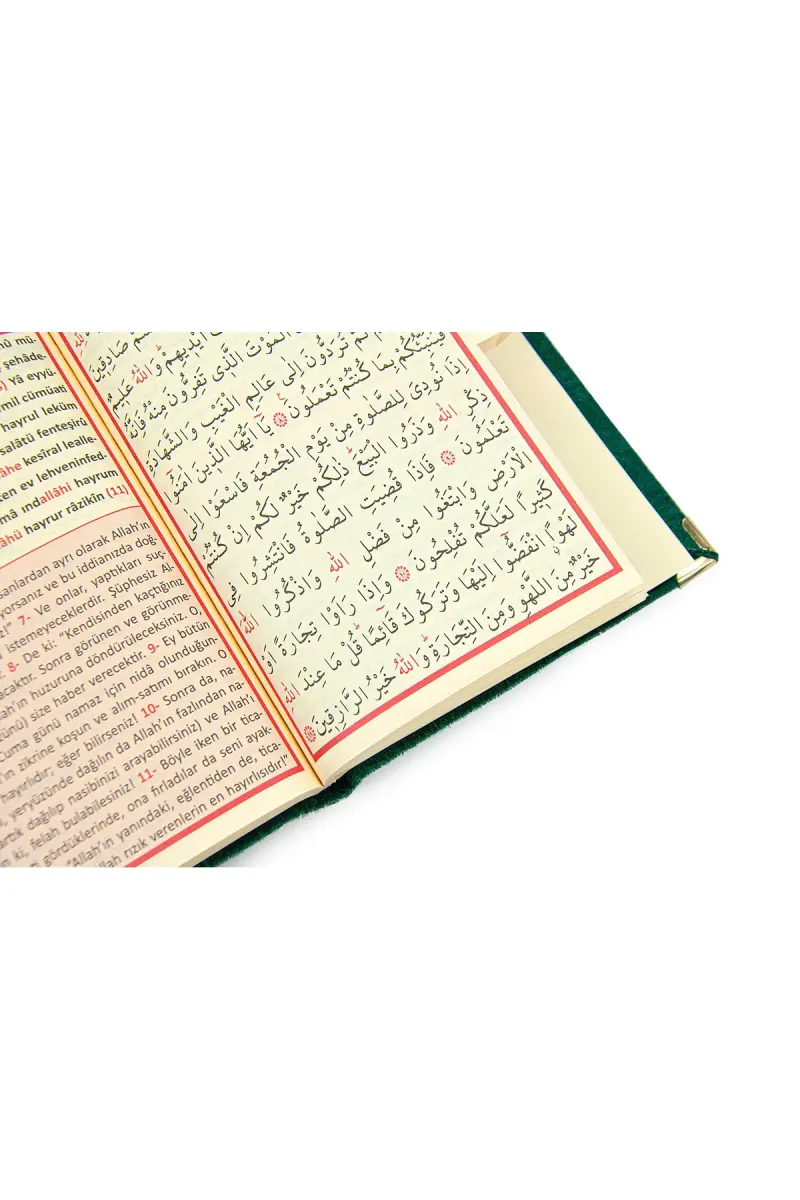 nû mû-
şehâde-
yâ eyyü-
mil cümüati
hayrul leküm
salâtü fenteşirû
âhe kesîral lealle-
ten ev lehveninfed-
mâ ındallâhi hayrum
ahü hayrur râzikîn (11)
sanlardan ayrı olarak Allah'ın
yorsanız ve bu iddianızda doğ-
z!” 7- Ve onlar, yaptıkları suç-
istemeyeceklerdir. Şüphesiz Al-
r. 8- De ki: “Kendisinden kaçtığınız
acaktır. Sonra görünen ve görünme-
ah'ın huzuruna döndürüleceksiniz. O,
günü) size haber verecektir. 9- Ey bütün
uma günü namaz için nidâ olunduğun-
h'ın zikrine koşun ve alım-satımı bırakın. O
hayırlıdır, eğer bilirseniz! 10- Sonra da, na-
, yeryüzünde dağılın da Allah'ın fazlından na-
artık dağılıp nasibinizi arayabilirsiniz) ve Allah'ı
ki, felah bulabilesiniz! 11- Böyle iken bir tica-
gördüklerinde, ona fırladılar da seni ayak-
“Allah'ın yanındaki, eğlentiden de, tica-
llah rızık verenlerin en hayırlısıdır!”
صَادِقِينَ
اَيْدِيهِمْ وَاللّٰهُ عَلِيمٌ
الْمَوْتَ الَّذِى تَفِرُّونَ مِنْهُ فَاِنَّهُ
تُرَدُّونَ اِلٰى عَالِمِ الْغَيْبِ وَالشَّهَادَةِ
فَيُنَبِّئُكُمْ بِمَا كُنْتُمْ تَعْمَلُونَ يَٓا اَيُّهَا الَّذِينَ اٰمَنُٓوا
اِذَا نُودِىَ لِلصَّلٰوةِ مِنْ يَوْمِ الْجُمُعَةِ فَاسْعَوْا اِلٰى
ذِكْرِ اللّٰهِ وَذَرُوا الْبَيْعَ ذٰلِكُمْ خَيْرٌ لَكُمْ اِنْ كُنْتُمْ
تَعْلَمُونَ فَاِذَا قُضِيَتِ الصَّلٰوةُ فَانْتَشِرُوا فِى
الْاَرْضِ وَابْتَغُوا مِنْ فَضْلِ اللّٰهِ وَاذْكُرُوا اللّٰهَ
كَثِيرًا لَعَلَّكُمْ تُفْلِحُونَ وَاِذَا رَاَوْا تِجَارَةً اَوْ
لَهْوًا انْفَضُّٓوا اِلَيْهَا وَتَرَكُوكَ قَٓائِمًا قُلْ مَا عِنْدَ اللّٰهِ
خَيْرٌ مِنَ اللَّهْوِ وَمِنَ التِّجَارَةِ وَاللّٰهُ خَيْرُ الرَّازِقِينَ